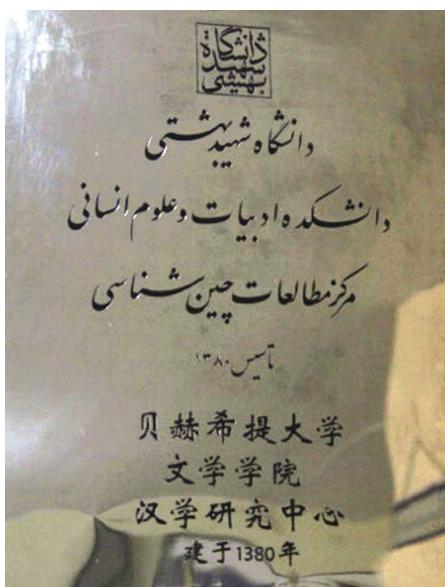 دانشگاه
شهید
بهشتی
دانشگاه شهید بهشتی
دانشکده ادبیات و علوم انسانی
مرکز مطالعات چین شناسی
تاسیس ۱۳۸۰
贝赫希提大学
文学学院
汉学研究中心
建于1380年